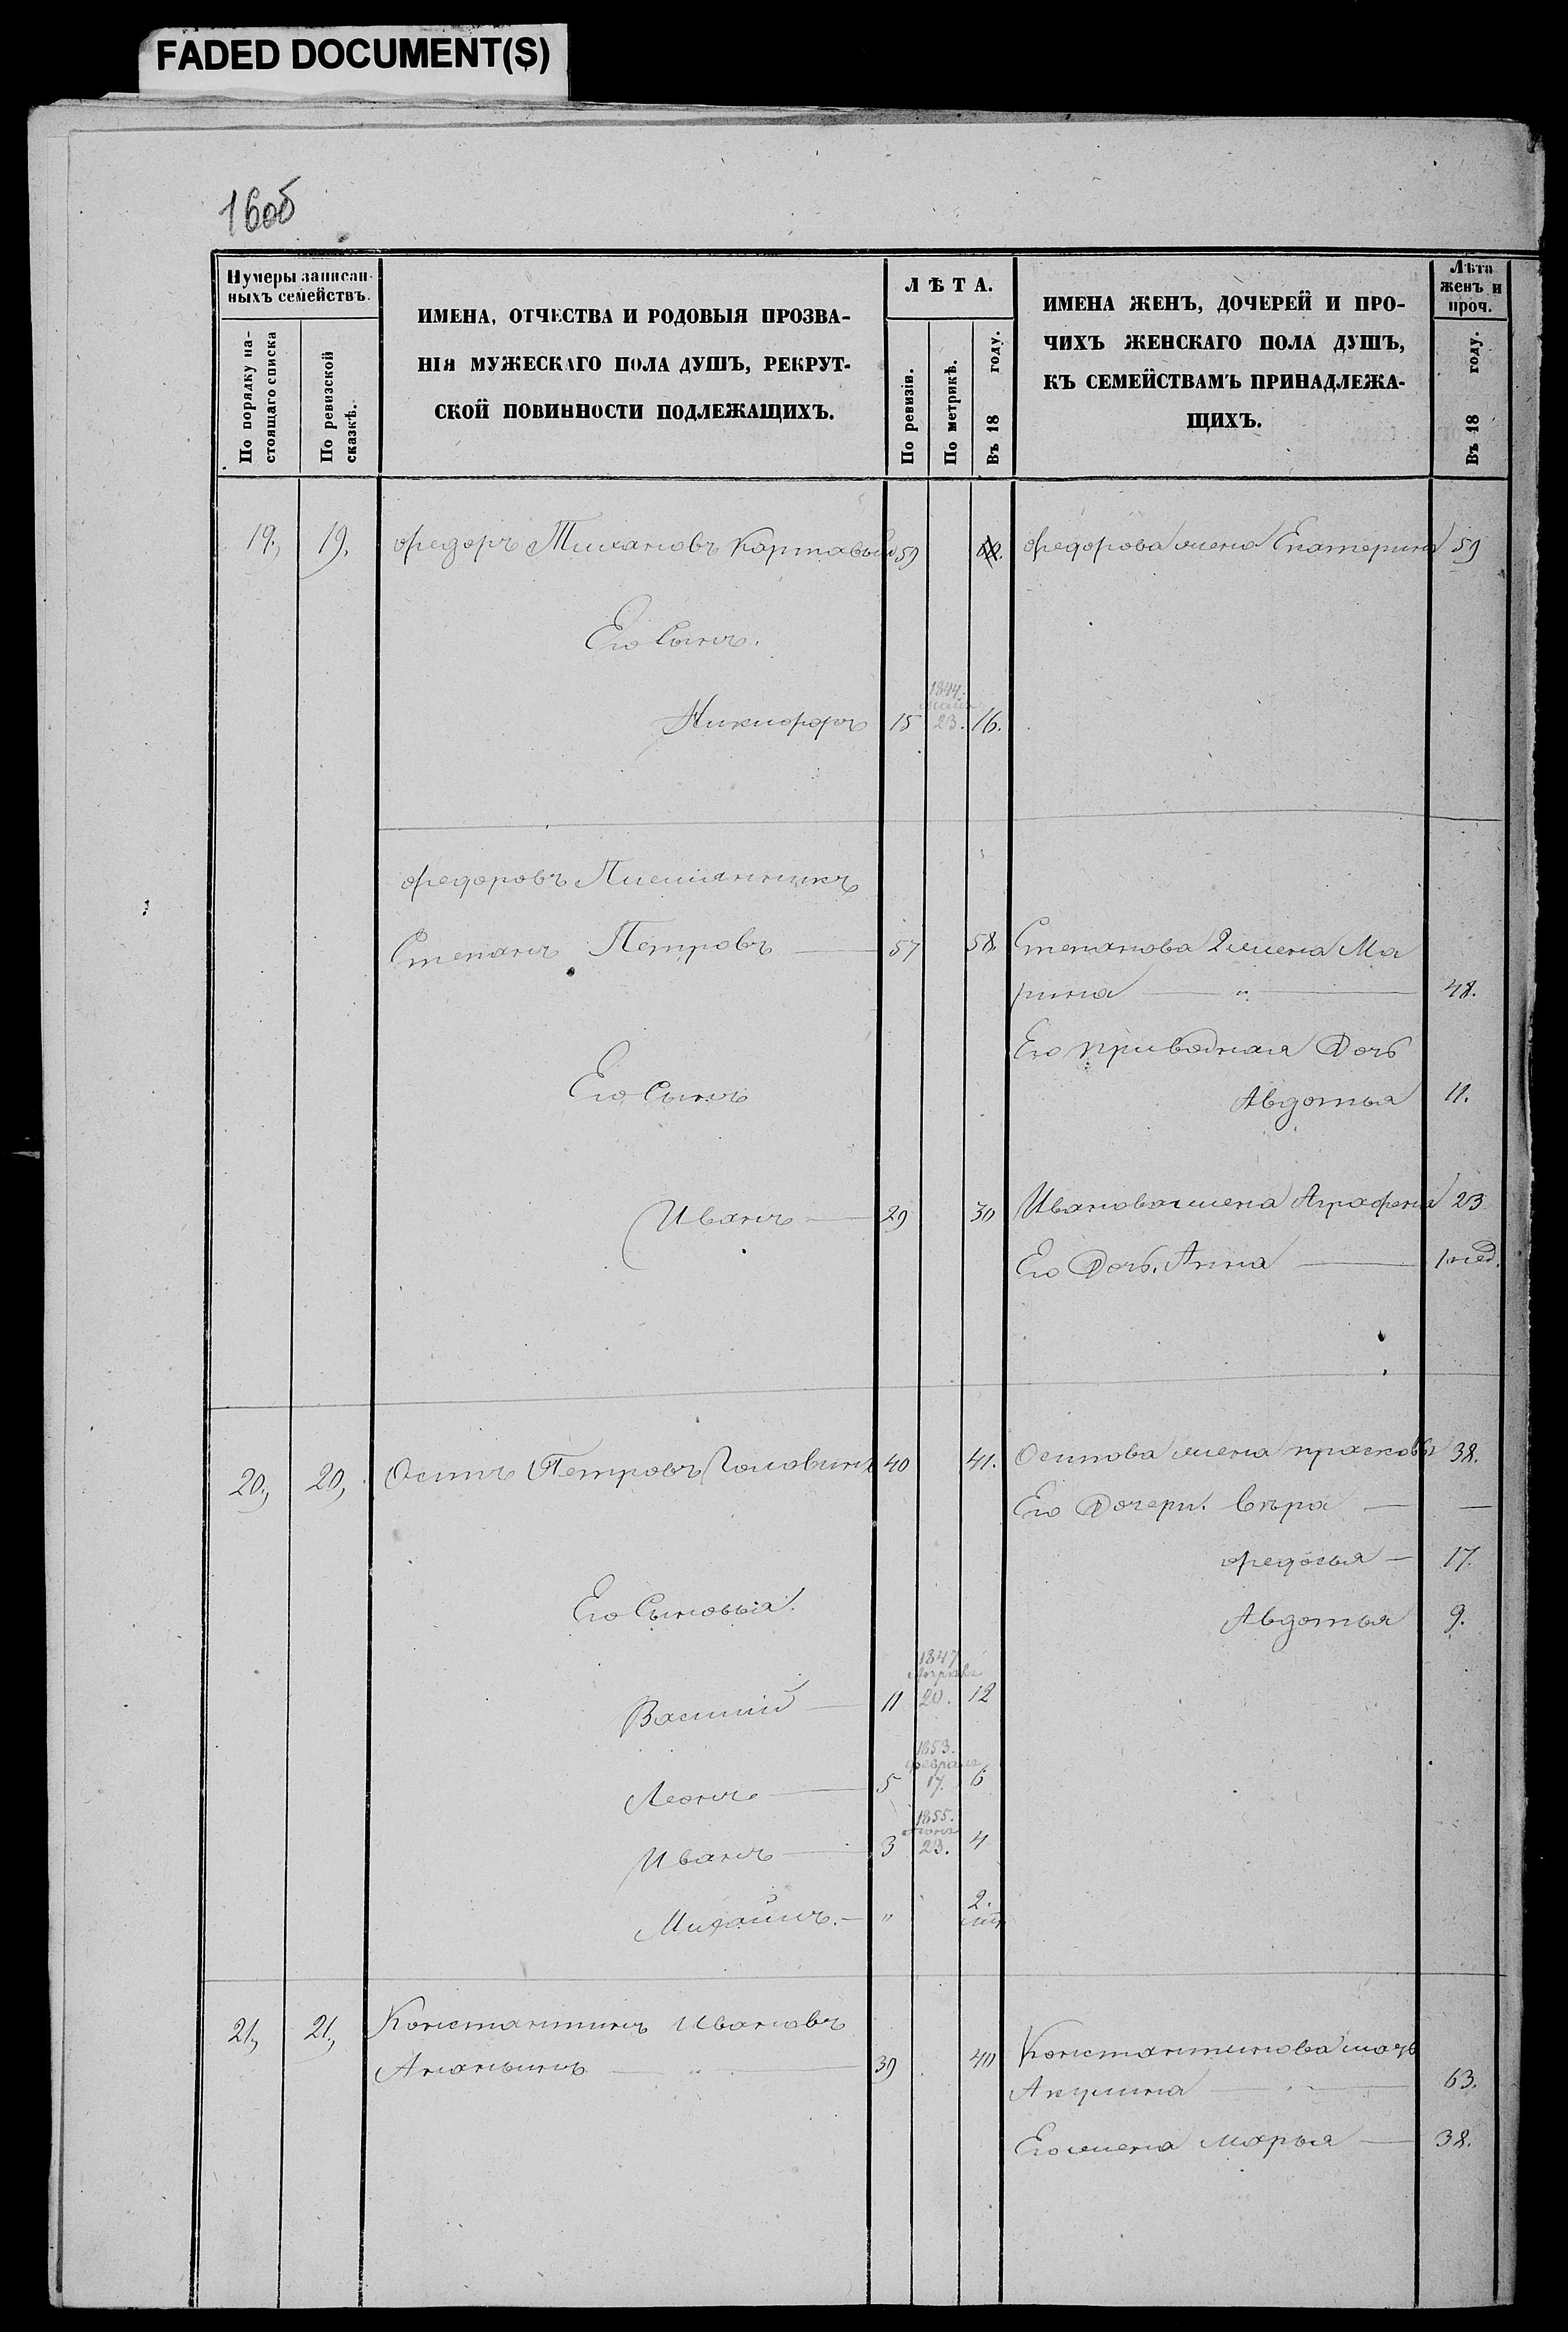 FADED DOCUMENT(S)
16об
Нумеры записан-
ныхъ семействъ.
По порядку на-
стоящаго списка
По ревизской
сказкѣ.
ИМЕНА, ОТЧЕСТВА И РОДОВЫЯ ПРОЗВА-
НІЯ МУЖЕСКАГО ПОЛА ДУШЪ, РЕКРУТ-
СКОЙ ПОВИННОСТИ ПОДЛЕЖАЩИХЪ.
ЛѢТА.
По ревизіи.
По метрикѣ.
Въ 18 году.
ИМЕНА ЖЕНЪ, ДОЧЕРЕЙ И ПРО-
ЧИХЪ ЖЕНСКАГО ПОЛА ДУШЪ,
КЪ СЕМЕЙСТВАМЪ ПРИНАДЛЕЖА-
ЩИХЪ.
Лѣта
женъ и
проч.
Въ 18 году.
19, 19, Федоръ Тихановъ Картавый 59 Федорова жена Екатерина 59
Его Сынъ.
1844.
Никифоръ 15 23. 16.
Федоровъ Племянникъ
Степанъ Петровъ — 57 58. Степанова 2 жена Ма
рина — " — 48.
Его приводная Дочь
Его Сынъ
Авдотья 11.
Иванъ — 29 30 Иванова жена Аграфена 23.
Его Дочь. Анна — 1 нед.
20, 20, Осипъ Петровъ Головинъ 40 41. Осипова жена Прасковья 38.
Его Дочери. Вѣра — —
Федосья — 17.
Его Сыновья.
Авдотья 9.
1847
Апрѣля
Василий — 11 20. 12
1853.
Февраля
Леонъ — 5 17. 6
1855.
Иванъ — 3 23. 4
Михаилъ. — " 2.
21, 21, Константинъ Ивановъ
Ананьинъ — 39 40 Константинова мать
Акулина — 63.
Его жена Марья — 38.